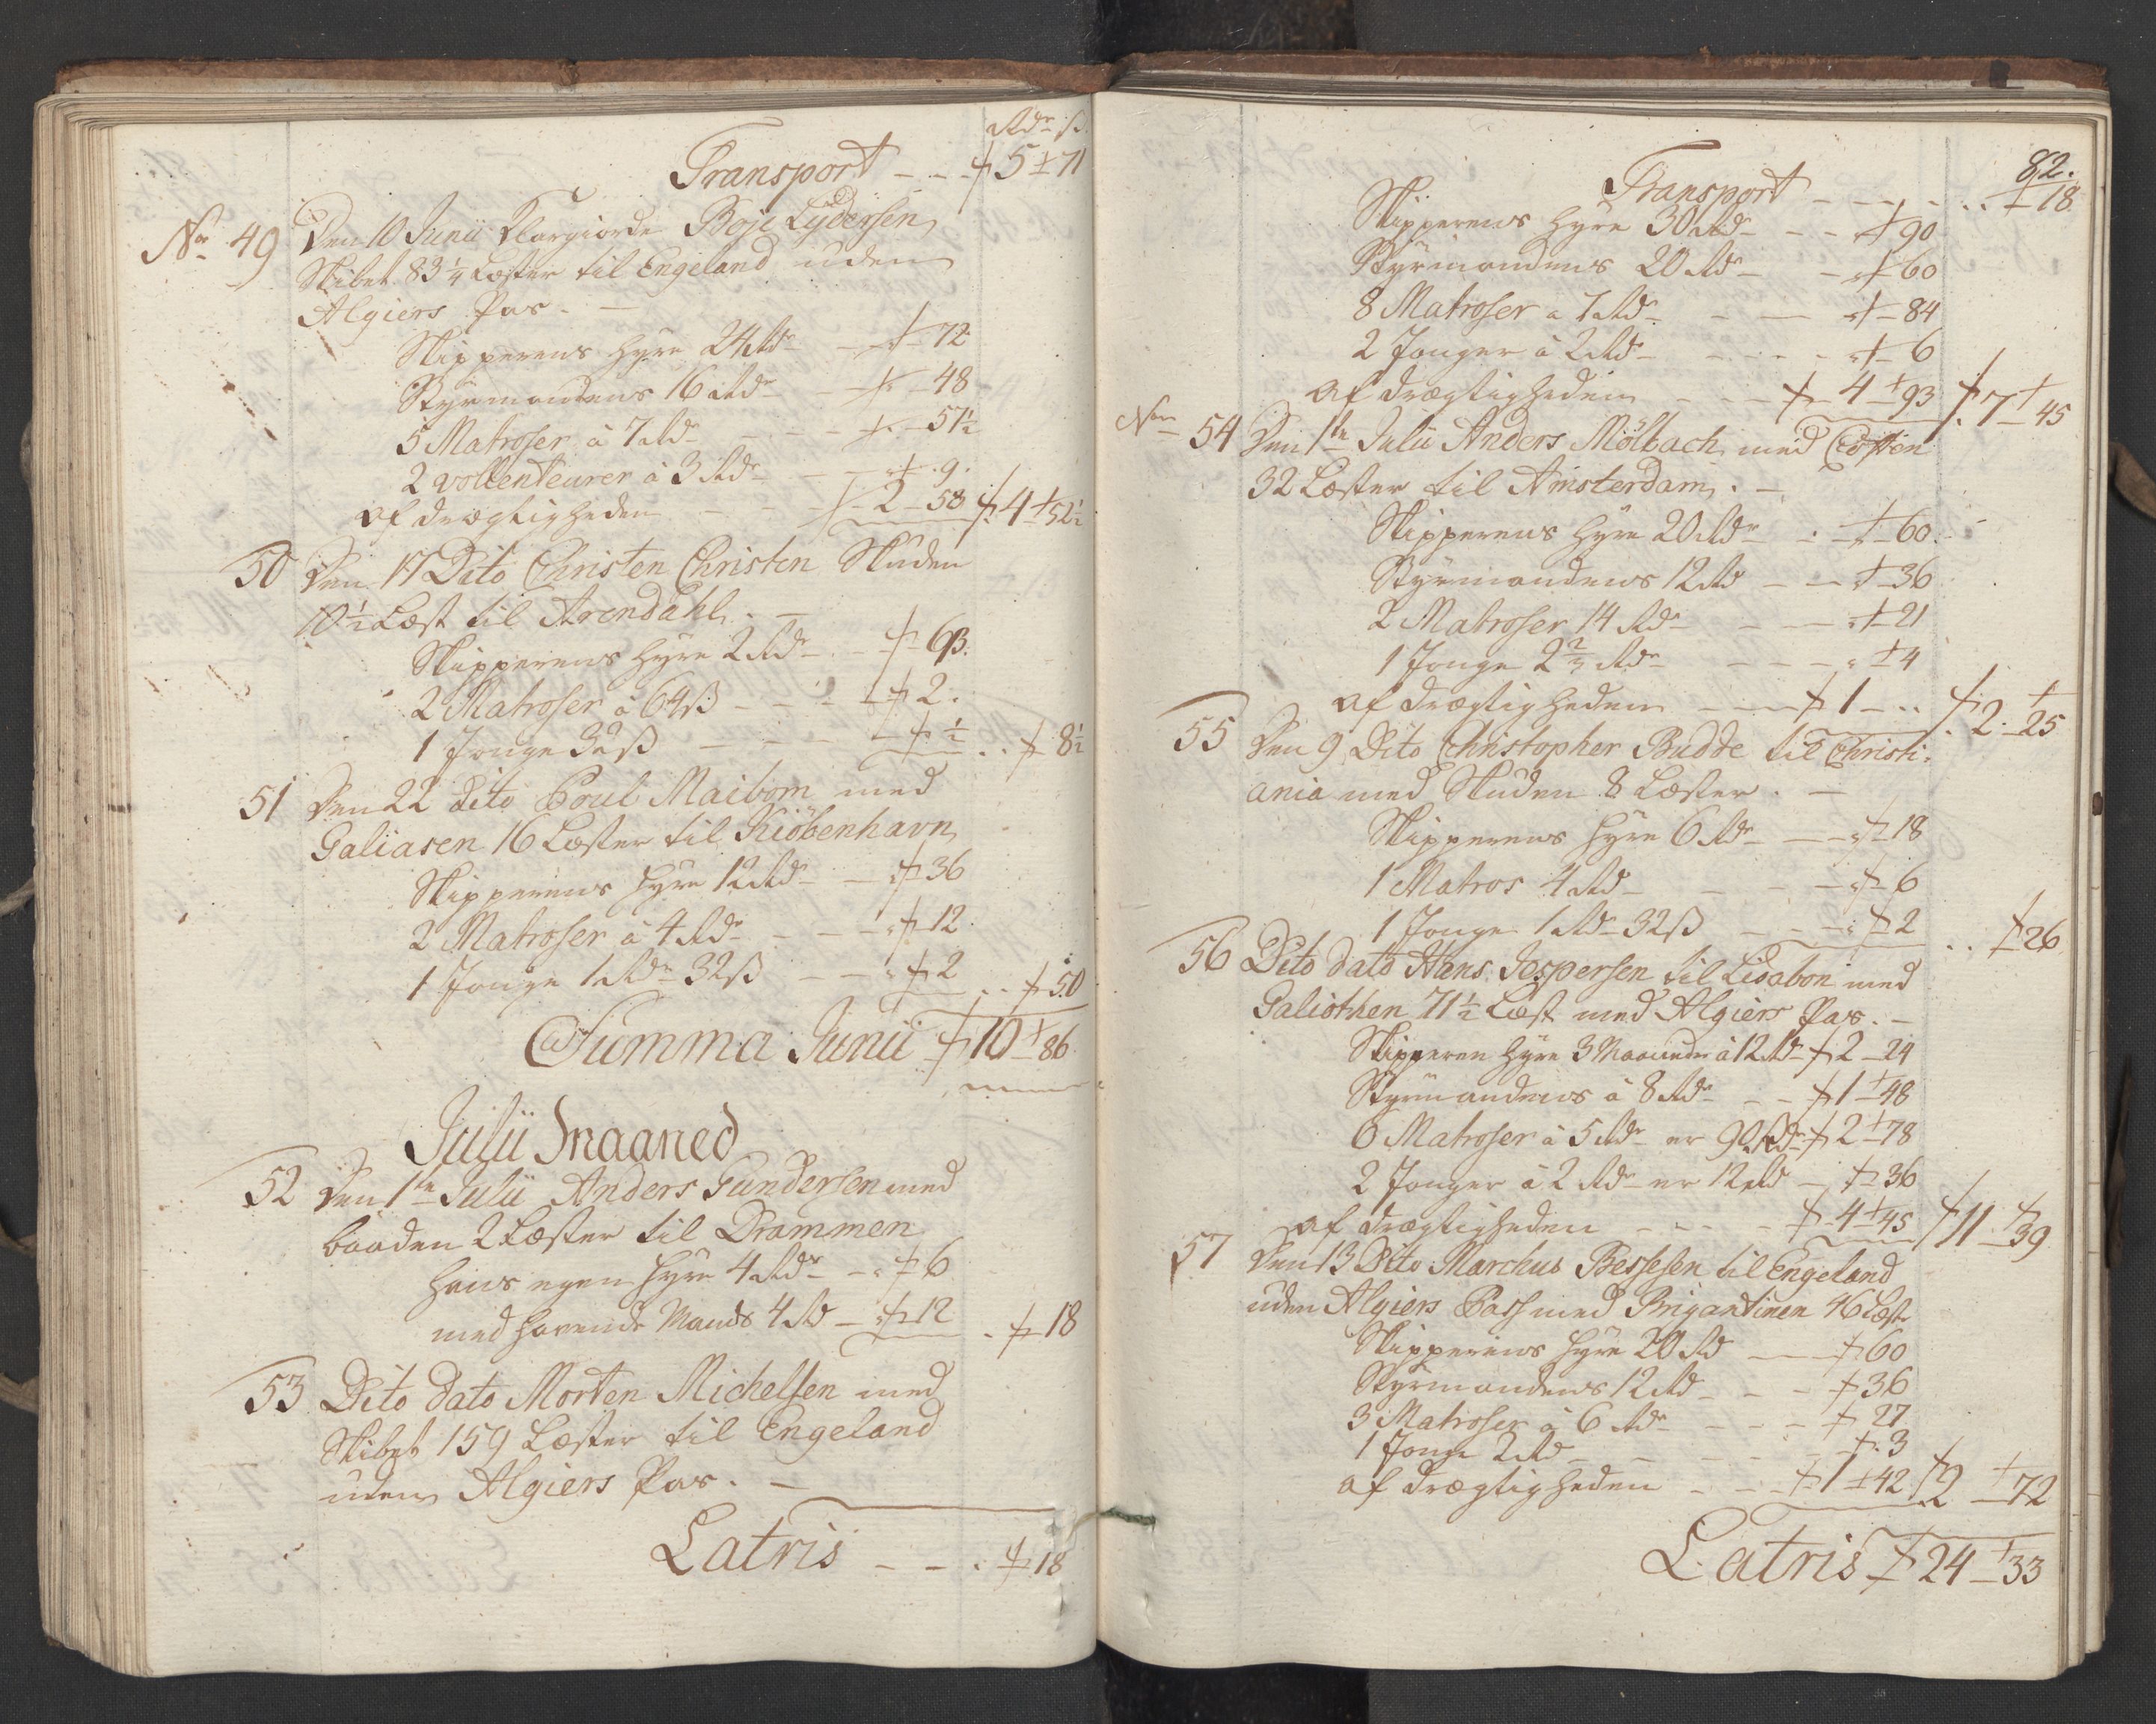 Rdr ß.
Transport - - - 5 71
No 49 Den 10 Junii Klargiorde Boje Lydersen
Skibet 83 1/4 Læster til Engeland uden
Algiers Pas. -
Skipperens Hyre 24 Rdr - - 72
Styrmandens 16 Rdr - 48
5 Matroser á 7 Rdr - - - 51½
2 vollenteurer á 3 Rdr - - 9.
af drægtigheden - - 2 - 58 4 52½
50 Den 17 Dito Christen Christen Skuden
10½ Læst til Arendahl. -
Skipperens Hyre 2 Rdr - 6ß.
2 Matroser á 64ß - - - 2.
1 Jonge 32ß - - - ½ .. 8½
51 Den 22 dito Poul Maibom med
Galiasen 16 Læster til Kiöbenhavn
Skipperens Hyre 12 Rdr - 36
2 Matroser á 4 Rdr - - - 12
1 Jonge 1 Rdr 32ß - - 2 .. 50
Summa Junii 10 86
Julii Maaned
52 Den 1te Julii Anders Gundersen med
baaden 2 Læster til Drammen
hans egen Hyre 4 Rdr - 6
med havende Mands 4 Rd - 12 . 18
53 Dito dato Morten Michelsen med
Skibet 159 Læster til Engeland
uden Algiers Pas. -
Latris - - . 18
82.
Transport - - - - .. 18
Skipperens Hyre 30 Rdr - - 90
Styrmandens 20 Rdr - - 60
8 Matroser a 7 Rdr - - 84
2 Jonger á 2 Rdr - - - - 6
af drægtigheden - - - 4 93 7 45
Nr 54 Den 1te Julii Anders Mölbach med
32 Læster til Amsterdam. -
Skipperens Hyre 20 Rdr - . - 60.
Styrmandens 12 Rd - - 36
2 Matroser 14 Rdr - - 21
1 Jonge 2 2/3 Rdr - - - 4
af drægtigheden - - 1 - .. 2 25
55 Den 9 Dito Christopher Budde til Christi-
ania med Skuden 8 Læster. -
Skipperens Hyre 6 Rdr - - 18
1 Matros 4 Rd - - - 6
1 Jonge 1 Rdr 32ß - - - 2 .. 26
56 Dito dato Hans Jespersen til Lisabon med
Galiothen 71½ Læst med Algiers Pas. -
Skipperen Hyre 3 Maaneder á 12 Rdr 2 - 24
Styrmandens á 8 Rdr - - 1 48
6 Matroser á 5 Rdr er 90 Rdr 2 78
2 Jonger á 2 Rdr er 12 Rd - 36
af drægtigheden - - - - 4 45 11 39
57 Den 13 Dito Marchus Bessesen til Engeland
uden Algiers Pass med Brigantinen 46 Læst
Skipperens Hyre 20 Rd - 60
Styrmandens 12 Rd - - - 36
3 Matroser á 6 Rdr - - - 27
1 Jonge 2 Rd - - - - 3
af drægtigheden - - - 1 42 2 72
Latris 24 33